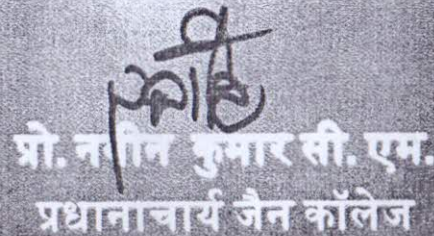 प्रो. नवीन कुमार सी. एम.
प्रधानाचार्य जैन कॉलेज